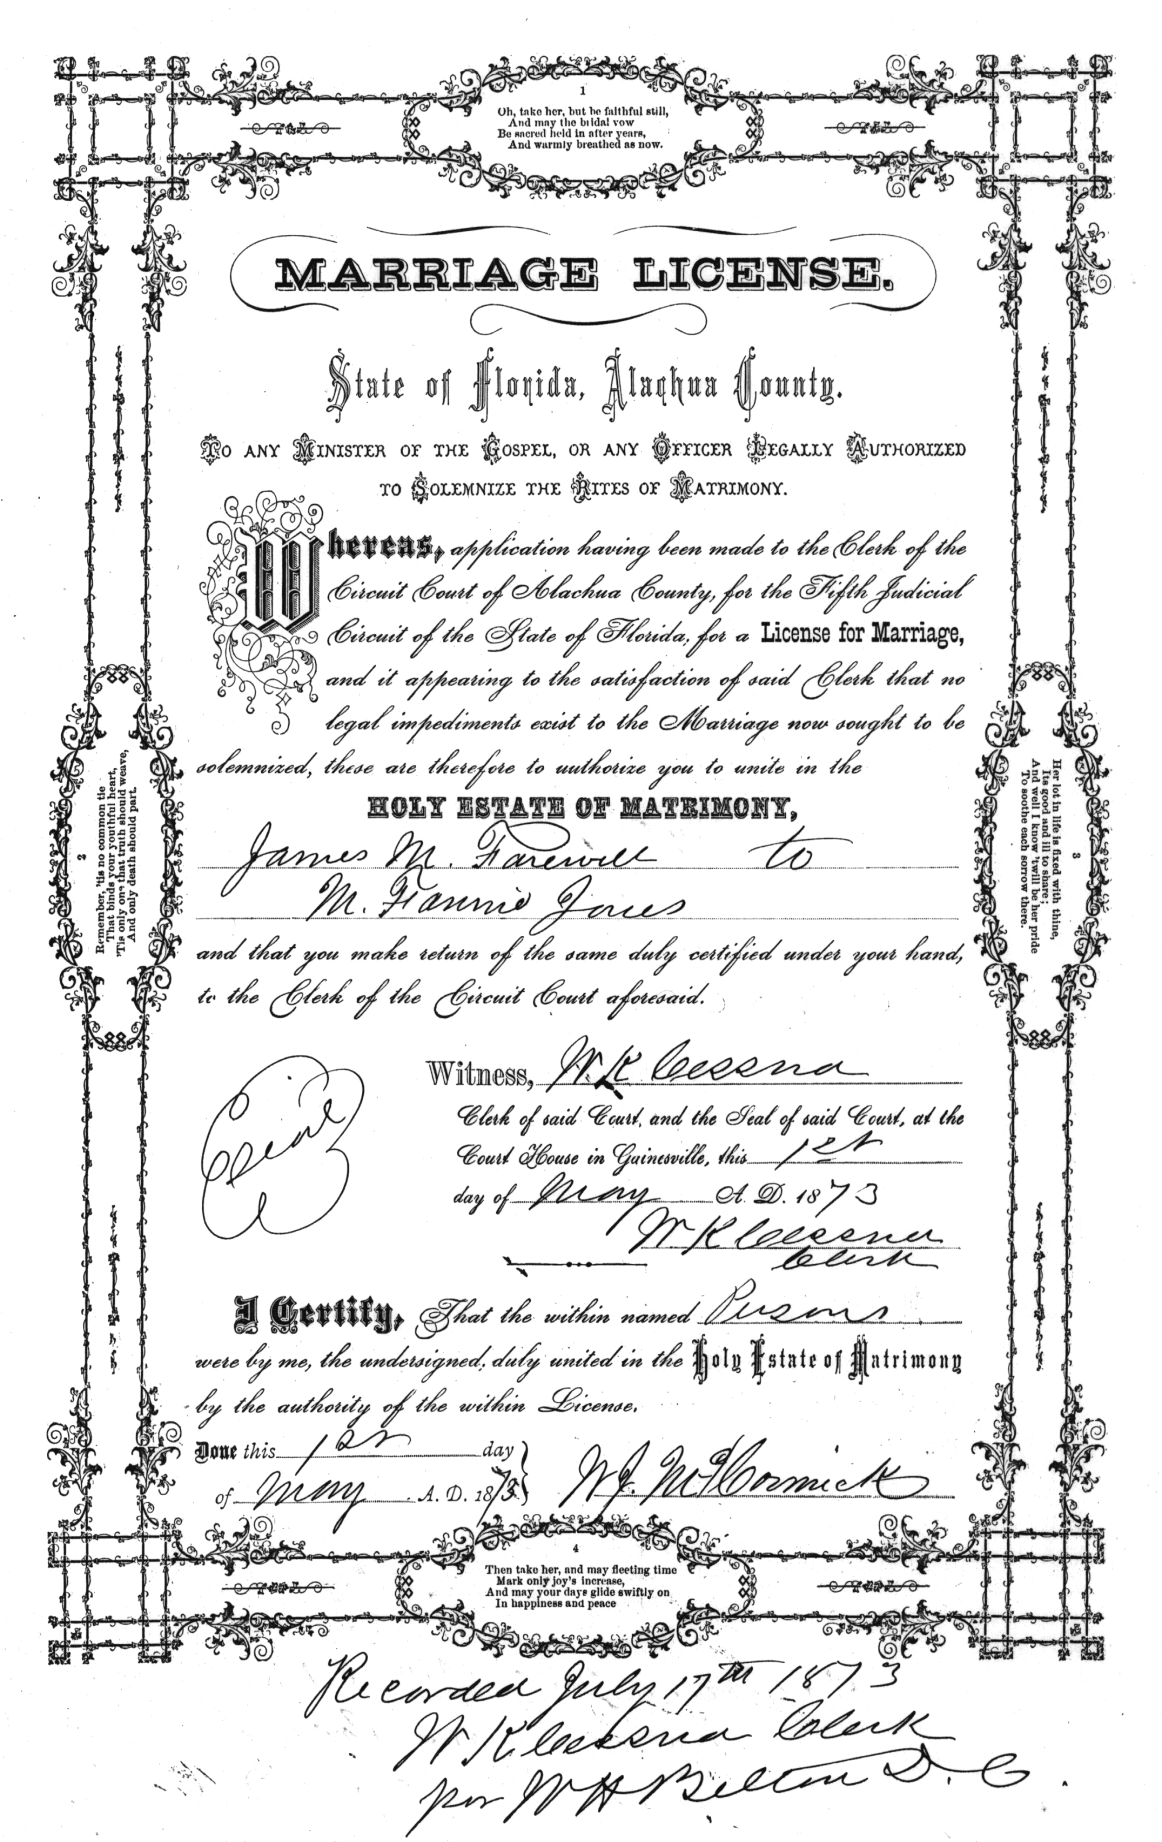 1
Oh, take her, but be faithful still,
And may the bridal vow
Be sacred held in after years,
And warmly breathed as now.
MARRIAGE LICENSE.
State of Florida, Alachua County.
TO ANY MINISTER OF THE GOSPEL, OR ANY OFFICER LEGALLY AUTHORIZED
TO SOLEMNIZE THE RITES OF MATRIMONY.
Whereas, application having been made to the Clerk of the
Circuit Court of Alachua County, for the Fifth Judicial
Circuit of the State of Florida, for a License for Marriage,
and it appearing to the satisfaction of said Clerk that no
legal impediments exist to the Marriage now sought to be
solemnized, these are therefore to authorize you to unite in the
HOLY ESTATE OF MATRIMONY,
James M. Farewell to
M. Fannie Jones
and that you make return of the same duly certified under your hand,
to the Clerk of the Circuit Court aforesaid.
Witness, W. K Cessna
Clerk of said Court, and the Seal of said Court, at the
Court House in Gainesville, this 1st
day of May A. D. 1873
W K Cessna
Clerk
I Certify, That the within named Persons
were by me, the undersigned, duly united in the Holy Estate of Matrimony
by the authority of the within License.
Done this 1st day
of May A. D. 1873
W. J. McCormick
2
Remember, 'tis no common tie
That binds your youthful heart,
'Tis only one that truth should weave,
And only death should part.
3
Her lot in life is fixed with thine,
Its good and ill to share;
And well I know 'twill be her pride
To soothe each sorrow there.
4
Then take her, and may fleeting time
Mark only joy's increase,
And may your days glide swiftly on
In happiness and peace
Recorded July 17th 1873
W K Cessna Clerk
per W H Belton D. C.